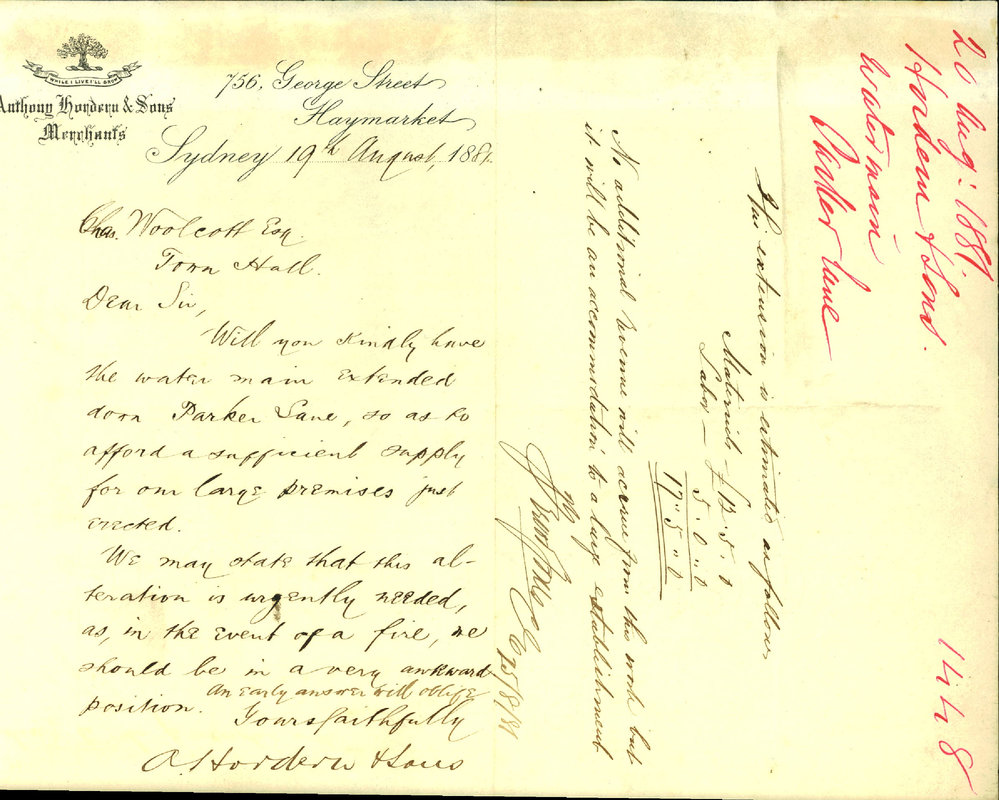 WHILE I LIVE I'LL GROW
Anthony Hordern & Sons
Merchants
756, George Street
Haymarket
Sydney 19th August, 1881.
Chas. Woolcott Esq.
Town Hall.
Dear Sir,
Will you kindly have
the water main extended
down Parker Lane, so as to
afford a sufficient supply
for our large premises just
erected.
We may state that this al-
teration is urgently needed,
as, in the event of a fire, we
should be in a very awkward
position. An early answer will oblige
Yours faithfully
A. Hordern & Sons
20 Aug: 1881.
Hordern & Sons.
Water main
Parker Lane
1448
This extension is estimated as follows,
Materials £12.5.0
Labor — 5.0.0
17.5.0
No additional revenue will accrue from this work but
it will be an accommodation to a large establishment
25/8/81